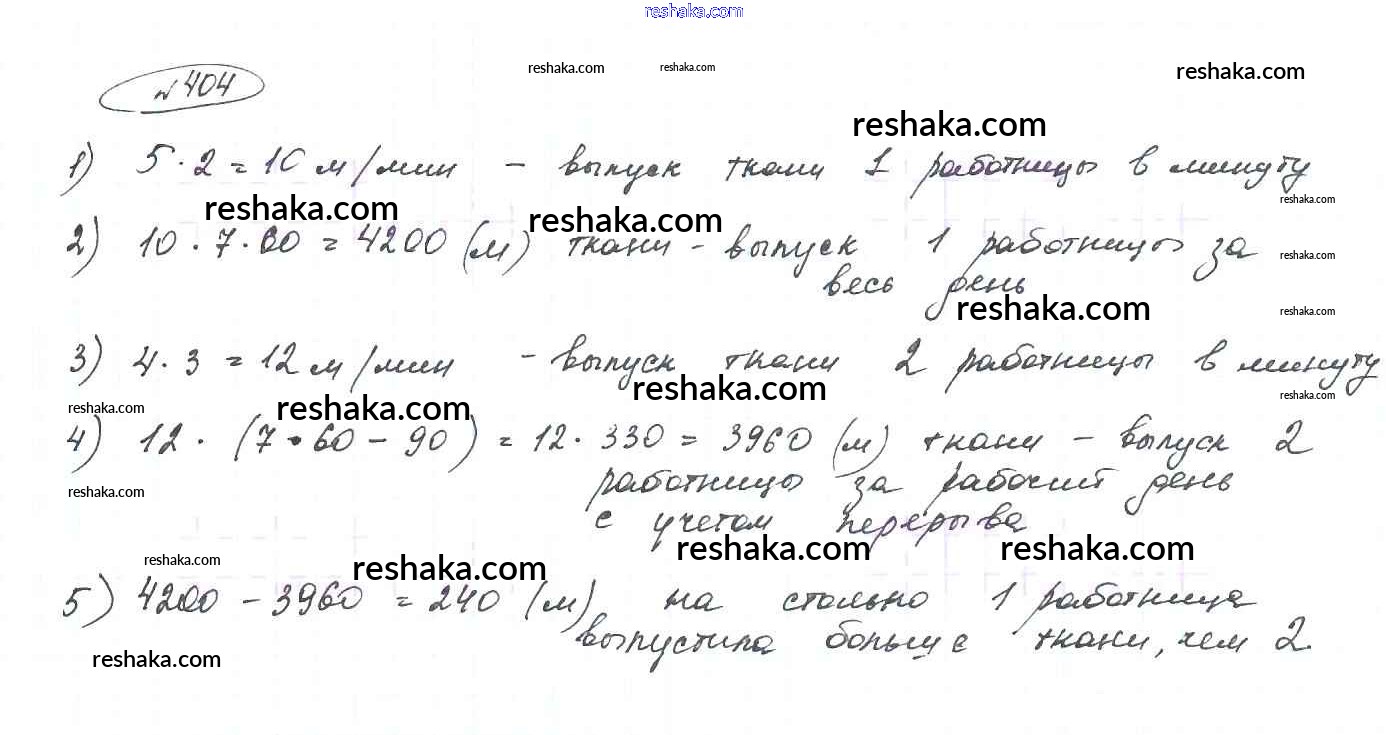 reshaka.com
№404
reshaka.com reshaka.com reshaka.com
reshaka.com
1) 5 · 2 = 10 м/мин – выпуск ткани 1 работницы в минуту
reshaka.com reshaka.com reshaka.com
2) 10 · 7 · 60 = 4200 (м) ткани – выпуск 1 работницы за
reshaka.com
весь день
reshaka.com reshaka.com
3) 4 · 3 = 12 м/мин – выпуск ткани 2 работницы в минуту
reshaka.com reshaka.com reshaka.com reshaka.com
4) 12 · (7 · 60 – 90) = 12 · 330 = 3960 (м) ткани – выпуск 2
работницы за рабочий день
reshaka.com
с учетом перерыва
reshaka.com reshaka.com reshaka.com reshaka.com
5) 4200 – 3960 = 240 (м) на столько 1 работница
выпустила больше ткани, чем 2.
reshaka.com